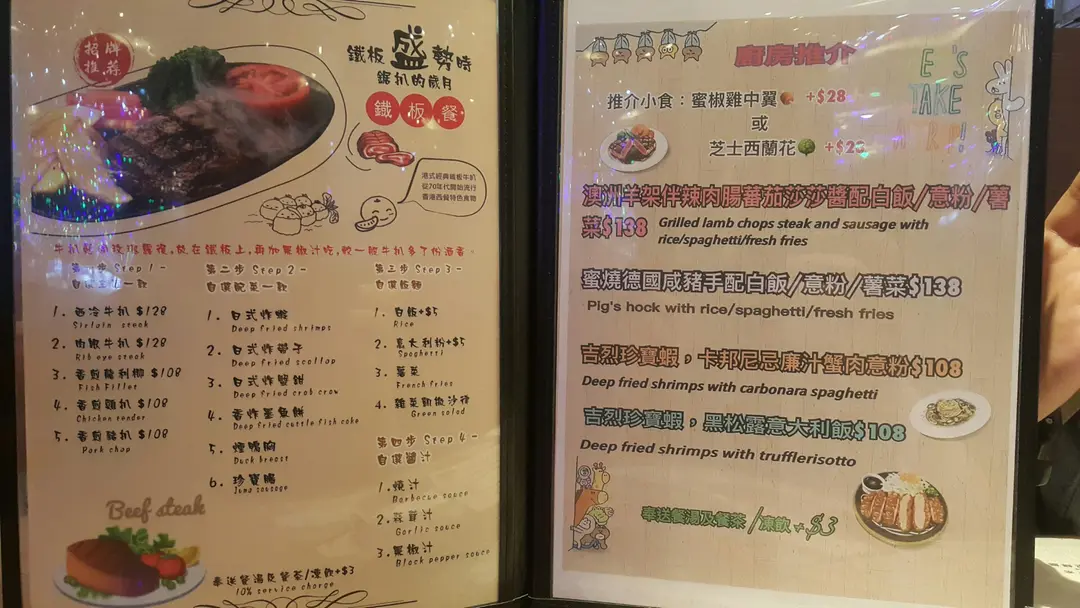 招牌
推薦
鐵板盛勢時
鋸扒的歲月
鐵板餐
港式經典鐵板牛扒
從70年代開始流行
香港西餐特色食物
第一步 Step 1 -
1. 西冷牛扒 $128
Sirloin steak
2. 肉眼牛扒 $128
Rib eye steak
3. 香煎龍利柳 $108
Fish Fillet
4. 香煎雞扒 $108
Chicken tender
5. 香煎豬扒 $108
Pork chop
Beef steak
第二步 Step 2 -
自選配菜一款
1. 日式炸蝦
Deep fried shrimps
2. 日式炸帶子
Deep fried scallop
3. 日式炸蟹鉗
Deep fried crab craw
4. 香炸墨魚餅
Deep fried cuttle fish cake
5. 煙鴨胸
Duck breast
6. 珍寶腸
Jumo sausage
第三步 Step 3 -
自選飯麵
1. 白飯+$5
Rice
2. 意大利粉+$5
Spaghetti
3. 薯菜
French fries
4. 雜菜
Green salad
第四步 Step 4 -
自選醬汁
1. 燒汁
Barbecue sauce
2. 蒜茸汁
Garlic sauce
3. 黑椒汁
Black pepper sauce
奉送餐湯及餐茶/凍飲+$3
10% service charge
廚房推介
推介小食：蜜椒雞中翼 +$28
或
芝士西蘭花
TAKE
澳洲羊架伴辣肉腸蕃茄莎莎醬配白飯/意粉/薯
菜$138 Grilled lamb chops steak and sausage with
rice/spaghetti/fresh fries
蜜燒德國咸豬手配白飯/意粉/薯菜$138
Pig's hock with rice/spaghetti/fresh fries
吉烈珍寶蝦，卡邦尼忌廉汁蟹肉意粉$108
Deep fried shrimps with carbonara spaghetti
吉烈珍寶蝦，黑松露意大利飯$108
Deep fried shrimps with trufflerisotto
奉送餐湯及餐茶/凍飲+$3